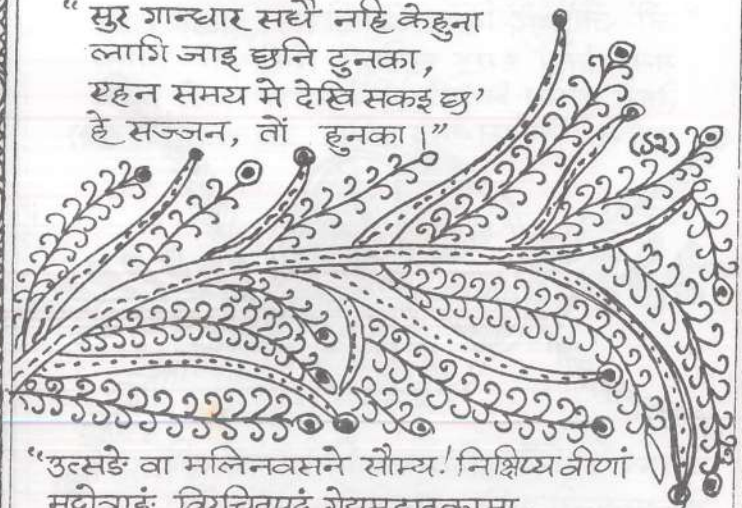 “सुर गान्धार सधै नहि केहुना
लागि जाइ छनि टुनका,
एहन समय मे देखि सकइ छ’
हे सज्जन, तों हुनका।”
(५२)
“उत्सङे वा मलिनवसने सौम्य! निक्षिप्य वीणां
मद्गोत्राङं विरचितपदं गेयमुद्गातुकामा